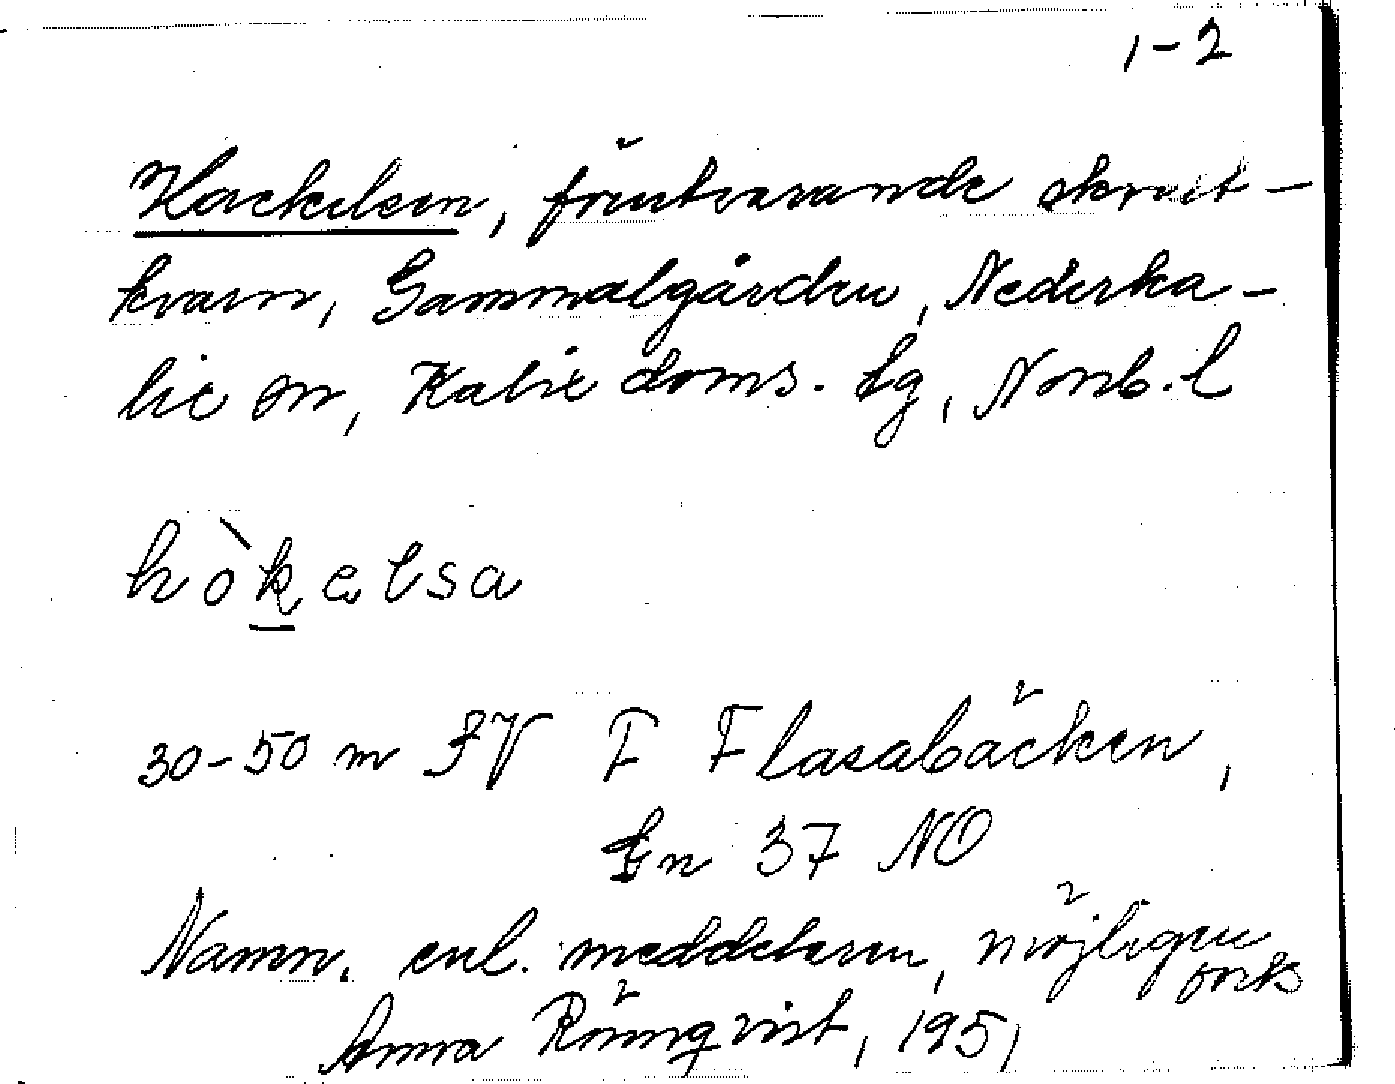 1-2
Hackelsen, förutvarande skrädt-
kvarn, Gammalgården, Nederka-
lix sn, Kalix doms. lg, Norrb. l
hòkelsa
30-50 m SV F Flasabäcken,
Gn 37 NO
Namn. enl. meddelaren, möjligen
Anna Rönnqvist, 1951